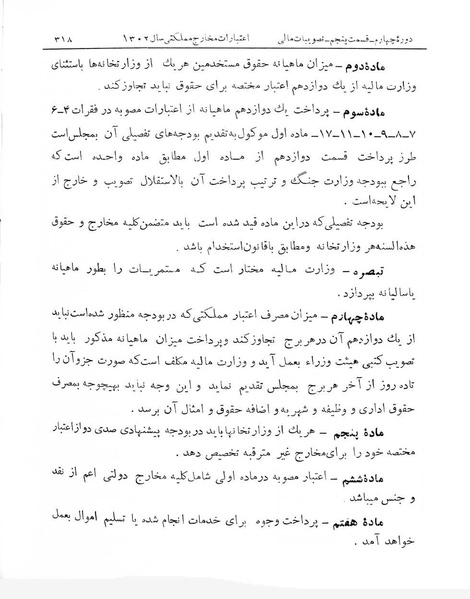 دورهٔ چهارم-قسمت پنجم-تصویبات مالی    اعتبارات مخارج مملکتی سال ۱۳۰۲    ۳۱۸
مادهٔ دوم - میزان ماهیانه حقوق مستخدمین هر یك از وزارتخانه‌ها باستثنای
وزارت مالیه از یك دوازدهم اعتبار مختصه برای حقوق نباید تجاوز کند.
مادهٔ سوم - پرداخت یك دوازدهم ماهیانه از اعتبارات مصوبه در فقرات ۴-۶
۷-۸-۹-۱۰-۱۱-۱۷- ماده اول موکول به تقدیم بودجه‌های تفصیلی آن بمجلس است
طرز پرداخت قسمت دوازدهم از ماده اول مطابق ماده واحده است که
راجع ببودجه وزارت جنگ و ترتیب پرداخت آن بالاستقلال تصویب و خارج از
این لایحه است.
بودجه تفصیلی که در این ماده قید شده است باید متضمن کلیه مخارج و حقوق
هذه‌السنه هر وزارتخانه ومطابق باقانون استخدام باشد.
تبصره - وزارت مالیه مختار است که مستمریات را بطور ماهیانه
یاسالیانه بپردازد.
مادهٔ چهارم - میزان مصرف اعتبار مملکتی که در بودجه منظور شده است نباید
از یك دوازدهم آن در هر برج تجاوز کند و پرداخت میزان ماهیانه مذکور باید با
تصویب کتبی هیئت وزراء بعمل آید و وزارت مالیه مکلف است که صورت جزو آن را
تا ده روز از آخر هر برج بمجلس تقدیم نماید و این وجه نباید بهیچوجه بمصرف
حقوق اداری و وظیفه و شهریه و اضافه حقوق و امثال آن برسد.
مادهٔ پنجم - هر یك از وزارتخانها باید در بودجه پیشنهادی صدی دو از اعتبار
مختصه خود را برای مخارج غیر مترقبه تخصیص دهد.
مادهٔ ششم - اعتبار مصوبه در ماده اولی شامل کلیه مخارج دولتی اعم از نقد
و جنس میباشد.
مادهٔ هفتم - پرداخت وجوه برای خدمات انجام شده یا تسلیم اموال بعمل
خواهد آمد.